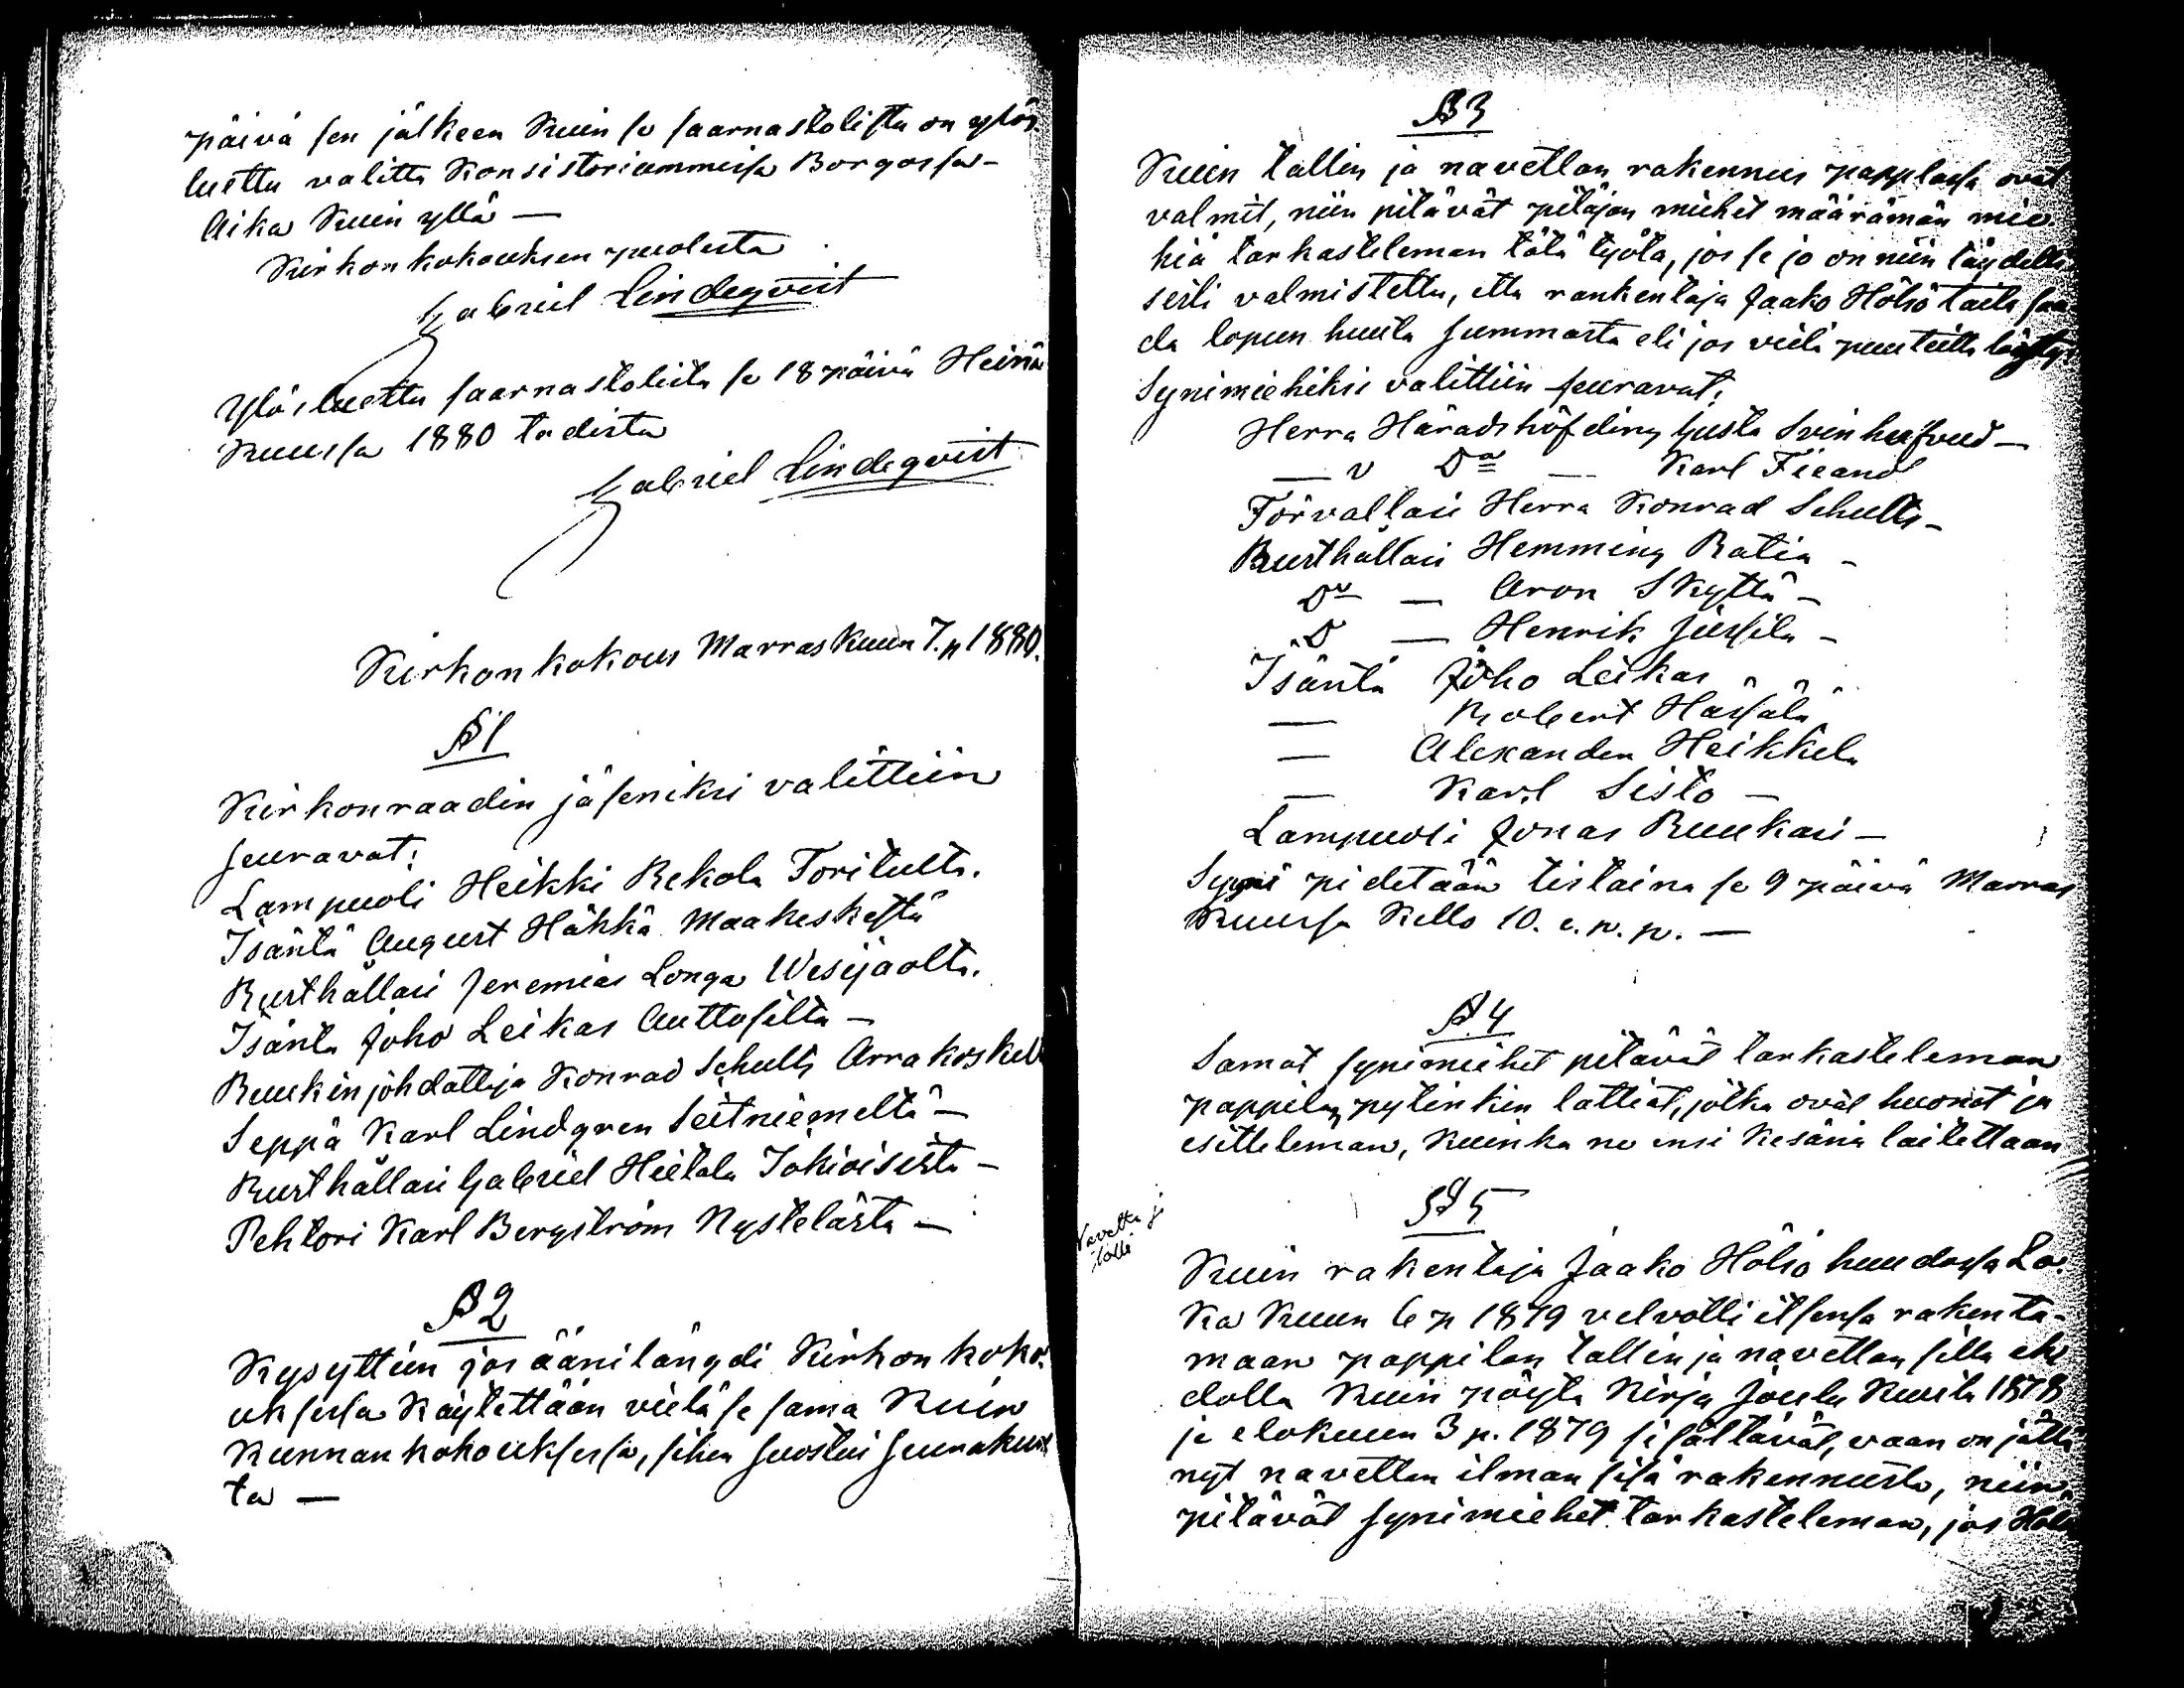 päivä sen jälkeen Kuin se saarnastolista on ylös
luettu valitta Konsistoriummissa Borgossa -
Aika Kuin yllä —
Kirkonkokouksen puolesta
Gabriel Lindeqvist
Ylösluettu saarnastolista se 18 päivä Heinä
Kuussa 1880 todista
Gabriel Lindeqvist
Kirkonkokous Marraskuun 7. p 1880.
§ 1
Kirkonraadin jäseniksi valittiin
seuravat:
Lampuoli Heikki Rekola Toritulta.
Isäntä August Häkkä Maakeskestä
Rusthållari Jeremias Longa Wesijaolta.
Isänta Joho Leikas Auttosilta —
Ruukinjohdattaja Konrad Schults Arrakoskelt
Seppä Karl Lindgren Seitniemeltä —
Rusthållari Gabriel Hietala Jokioisista —
Pehtori Karl Bergström Nystelästa —
§ 2
Kysyttiin jos äänilängdi Kirkon koko-
uksessa Käytettään vielä se sama Kuin
Kunnankokouksessa, sihen suostui seurakun
ta —
§ 3
Kuin tallin ja navettan rakennus papplassa ovat
valmit, niin pitävät pitäjan miehet määrämän mie
hiä tarkasteleman tätä työta, jos se jo on niin täydelli
sesti valmistettu, etta rankentaja Jaako Hölsö taita saa
da lopun huuta summasta eli jos vielä puuteitta löyty
Synimiehiksi valittiin seuravat:
Herra Häradshöfding Gusta Svinhufvud —
— v D:o — Karl Fieand
Förvaltari Herra Konrad Schults -
Rusthållari Hemming Ratia -
D:o — Aron Skyttä -
D — Henrik Jussila -
Isäntä Joho Leikas
— Robert Hassala
— Alexander Heikkela
— Karl Sisto —
Lampuosi Jonas Ruukari —
Syyni pidetään tistaina se 9 päivä Marras
Kuussa Kello 10. e. p. p. —
§ 4
Samat synimiehet pitävät tarkasteleman
pappilan pytinkin lattiat, jotka ovat huonot ja
esitteleman, Kuinka ne ensi Kesänä laitettaan
§ 5
Navetta ja
talli
Kuin rakentaja Jaako Hölsö huudossa Lo-
Ka Kuun 6 p 1879 velvotti itsensa rakenta-
maan pappilan tallin ja navettan silla eh
dolla Kuin pöyta Kirja Joulu Kuulta 1878
ja elokuun 3 p. 1879 sisältävät, vaan on jättä
nyt navettan ilman sisä rakennusta, niin
pitävät synimiehet tarkasteleman, jos Hölsö